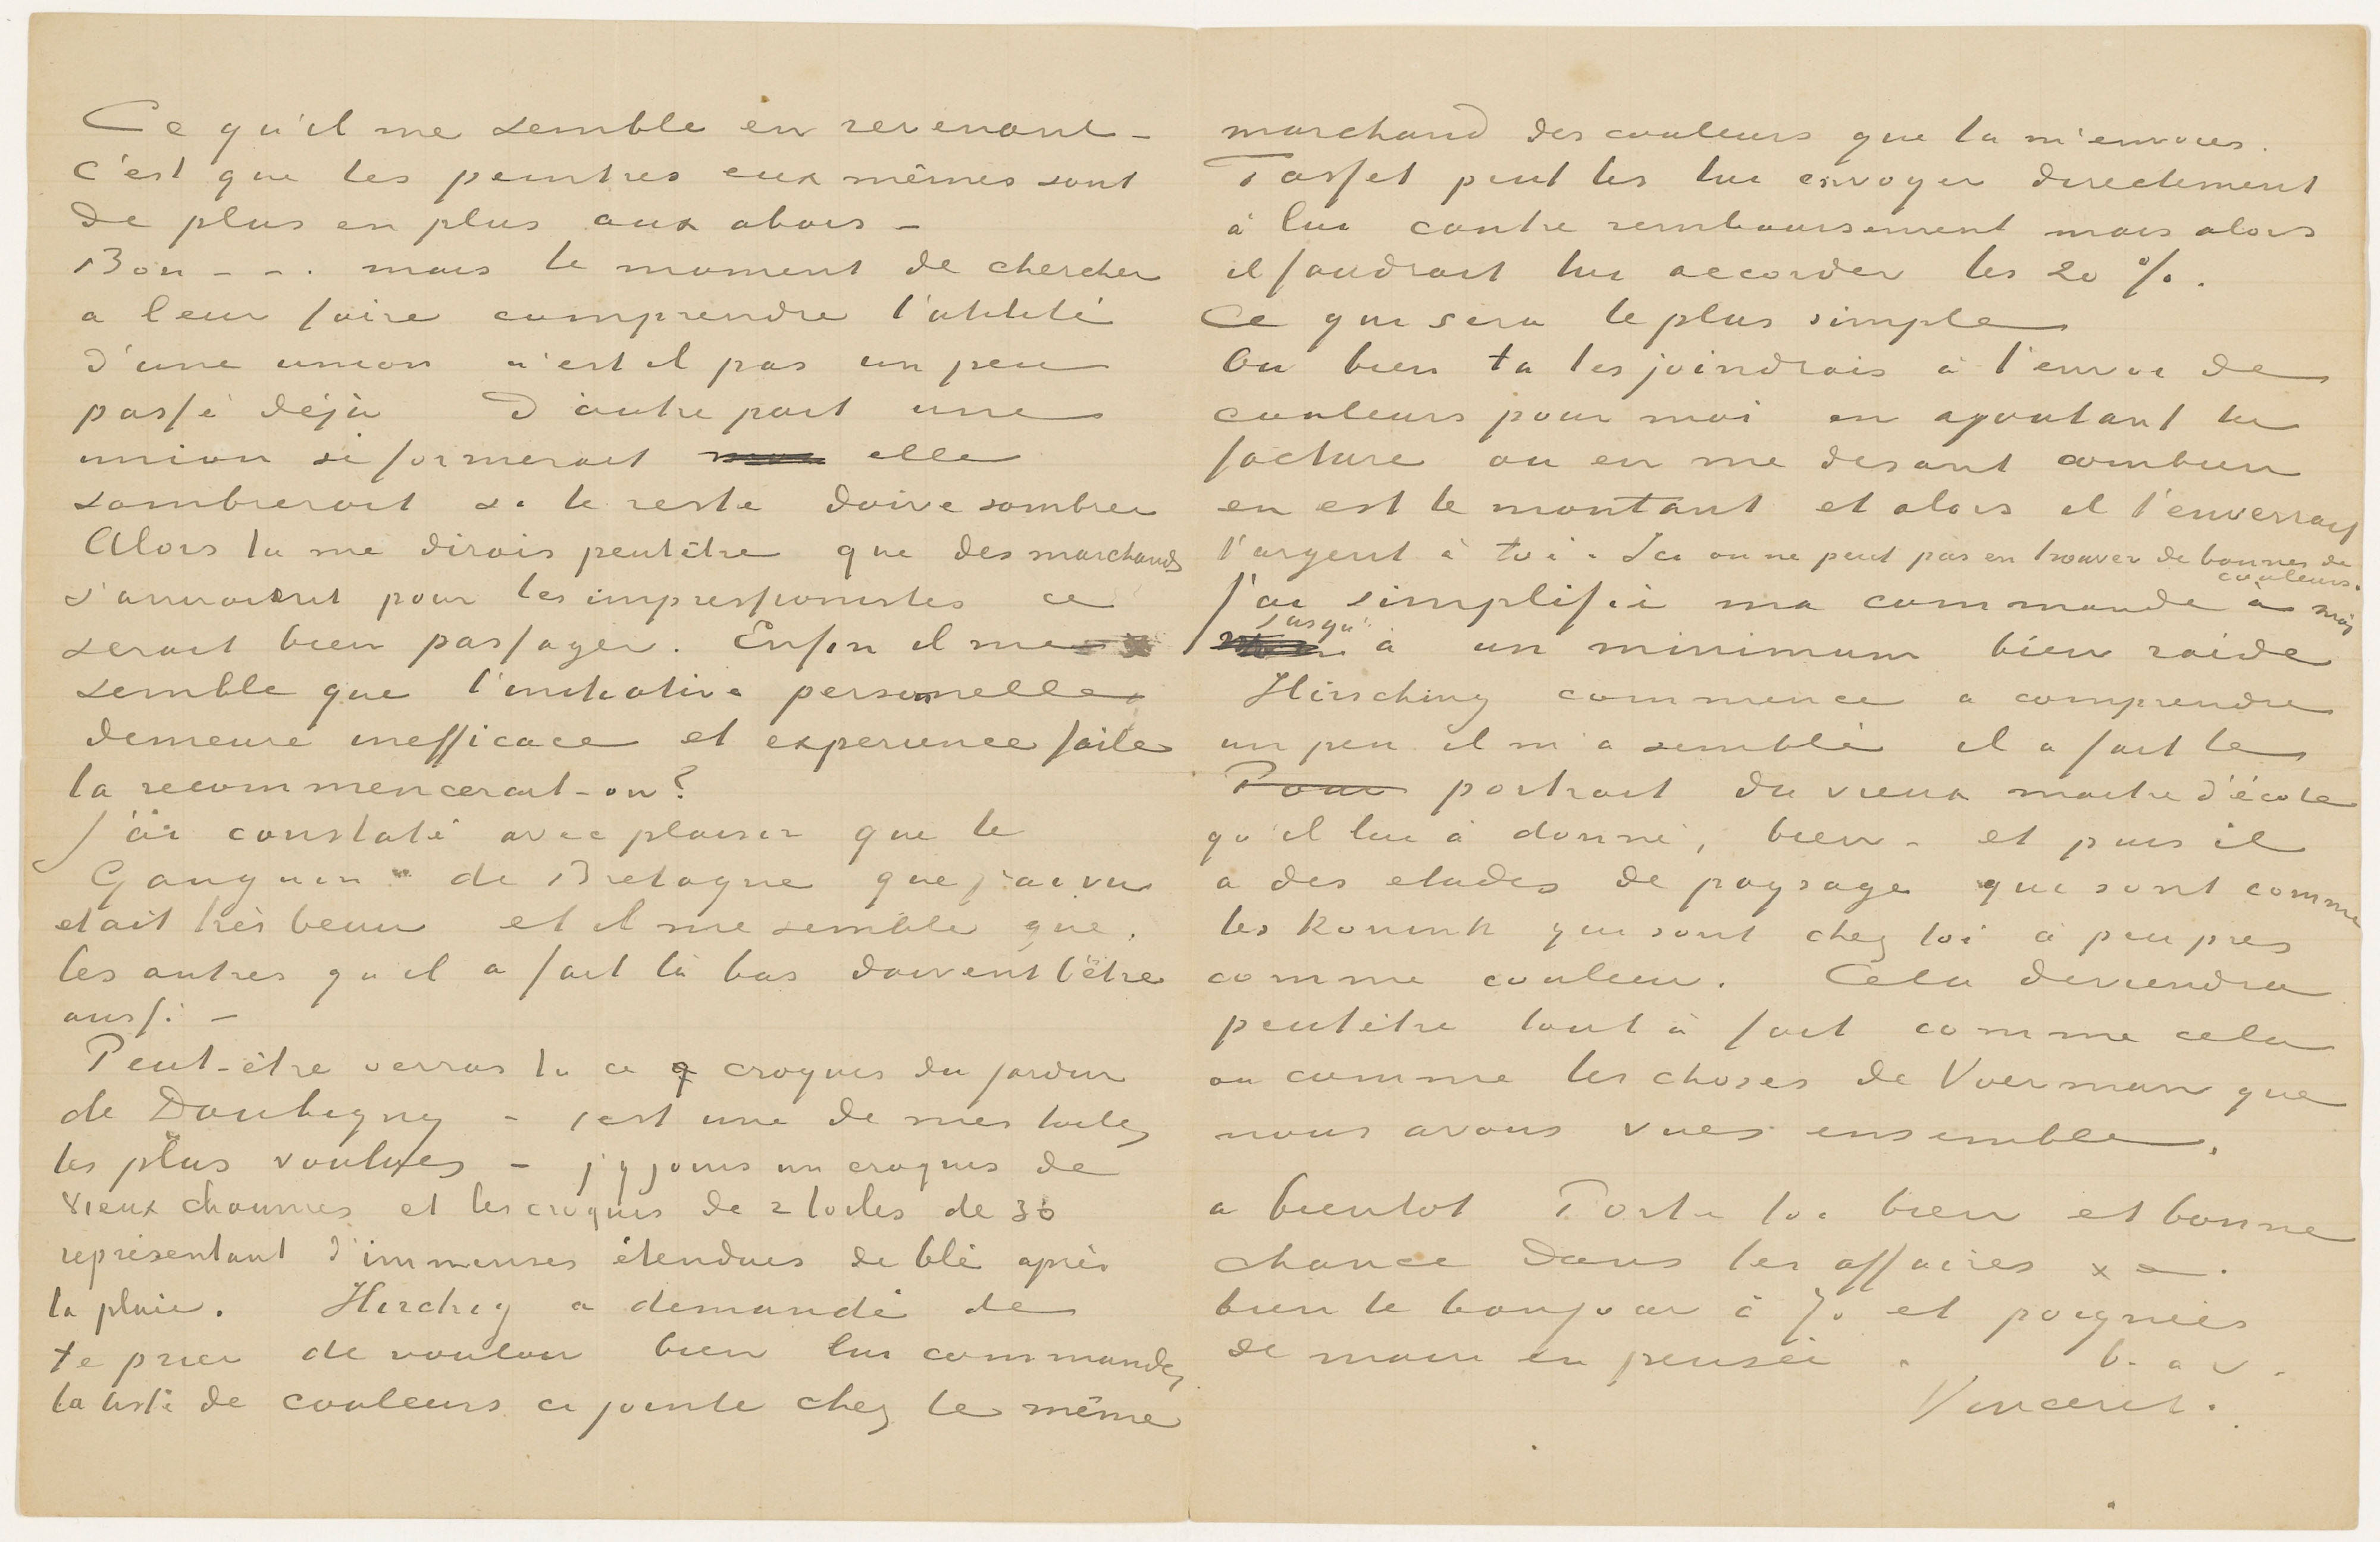 Ce qu'il me semble en revenant –
c'est que les peintres eux mêmes sont
de plus en plus aux abois –
Bon - - . mais le moment de chercher
a leur faire comprendre l'utilité
d'une union n'est il pas un peu
passé déjà D'autre part une
union se formerait elle
sombrerait si le reste doive sombrer
Alors tu me dirais peutêtre que des marchands
s'uniraient pour les impressionistes ce
serait bien passager. Enfin il me
semble que l'initiative personnelle
demeure inefficace et experience faite
la recommencerait-on?
J'ai constaté avec plaisir que le
Gauguin de Bretagne que j'ai vu
etait très beau et il me semble que
les autres qu'il a fait là bas doivent l'être
aussi –
Peut-être verras tu ce croquis du jardin
de Daubigny – c'est une de mes toiles
les plus voulues – j'y joins un croquis de
vieux chaumes et les croquis de 2 toiles de 30
représentant d'immenses étendues de blé après
la pluie. Hirchig a demandé de
te prier de vouloir bien lui commander
la liste de couleurs ci jointe chez le même
marchand des couleurs que tu m'envoies.
Tasset peut les lui envoyer directement
à lui contre remboursement mais alors
il faudrait lui accorder les 20 %.
Ce qui sera le plus simple
Ou bien tu les joindrais à l'envoi de
couleurs pour moi en ajoutant la
facture ou en me disant combien
en est le montant et alors il t'enverrait
l'argent à toi. Ici on ne peut pas en trouver de bonnes de
couleurs.
J'ai simplifié ma commande à moi
jusqu'à un minimum bien raide
Hirsching commence a comprendre
un peu il m'a semblé il a fait le
Pour portrait du vieux maitre d'école
qu'il lui à donné, bien – et puis il
a des etudes de paysage qui sont comme
les Konink qui sont chez toi à peu pres
comme couleur. Cela deviendra
peutêtre tout à fait comme cela
ou comme les choses de Voerman que
nous avons vues ensemble.
a bientot Porte toi bien et bonne
chance dans les affaires &c.
bien le bonjour à Jo et poignées
de main en pensée .
t. à v.
Vincent.